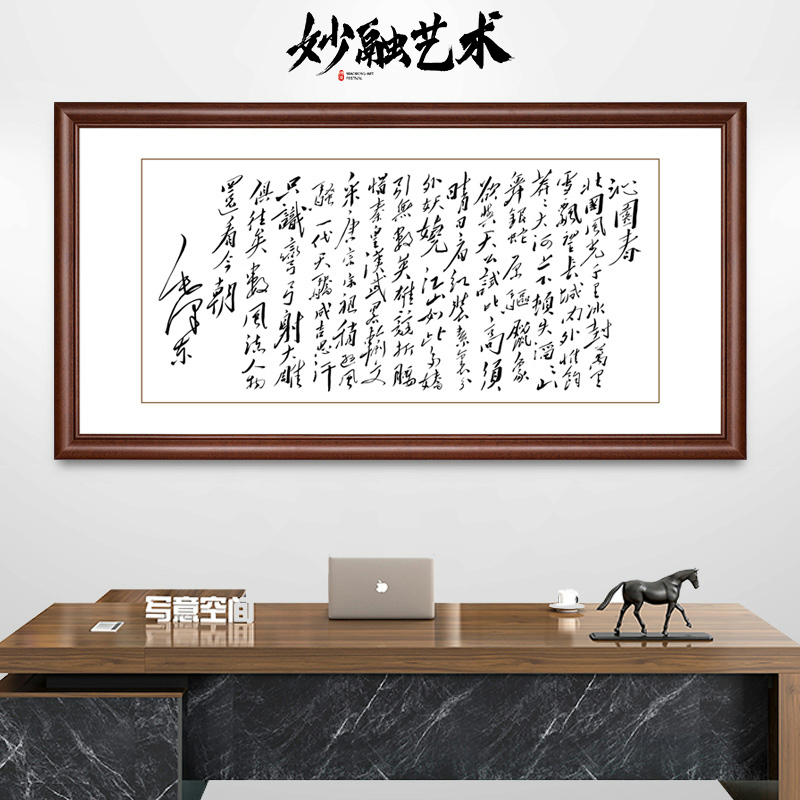 妙融艺术
MIAORONG ART
FESTIVAL
沁園春
北國風光千里冰封萬里
雪飄望長城内外惟餘
莽々大河上下頓失滔々山
舞銀蛇原驅臘象
欲與天公試比高須
晴日看紅裝素裹分
外妖嬈江山如此多嬌
引無數英雄競折腰
惜秦皇漢武略輸文
采唐宗宋祖稍遜風
騷一代天驕成吉思汗
只識彎弓射大雕
俱往矣數風流人物
還看今朝
毛澤東
写意空间